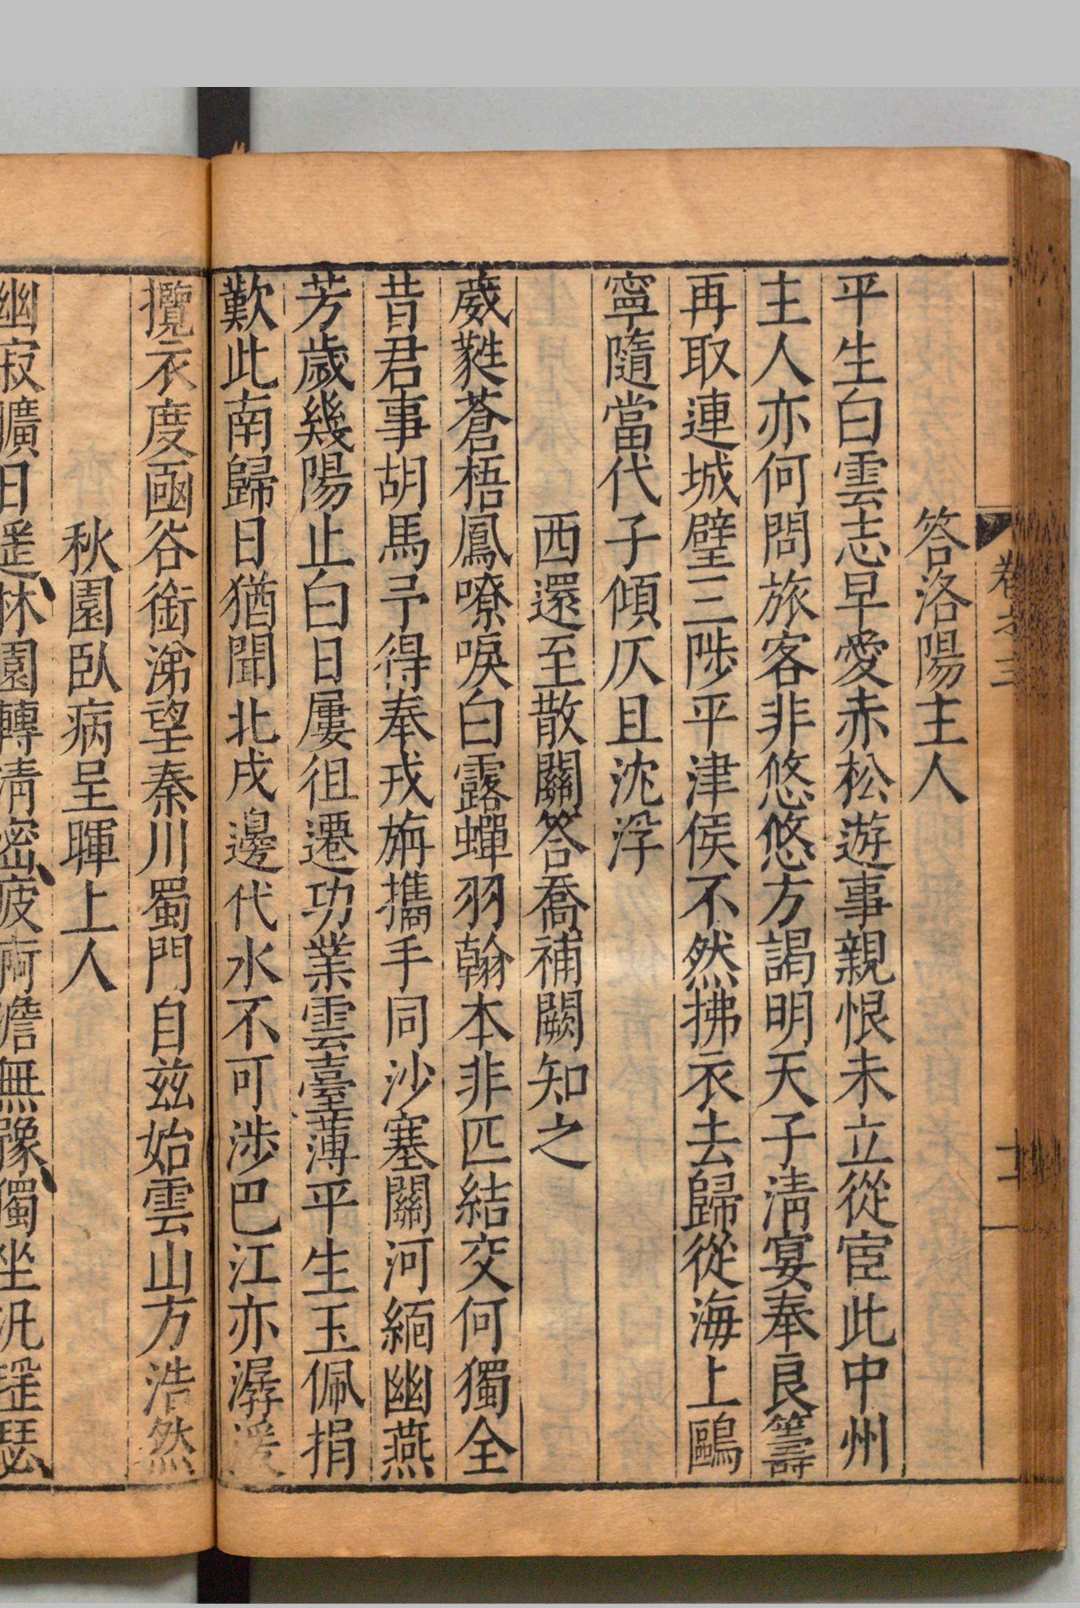 卷之三
答洛陽主人
平生白雲志早愛赤松遊事親恨未立從宦此中州
主人亦何問旅客非悠悠方謁明天子淸宴奉良籌
再取連城璧三陟平津侯不然拂衣去歸從海上鷗
寧隨當代子傾仄且沈浮
西還至散關答喬補闕知之
葳蕤蒼梧鳳嘹唳白露蟬羽翰本非匹結交何獨全
昔君事胡馬予得奉戎旃攜手同沙塞關河緬幽燕
芳歲幾陽止白日屢徂遷功業雲臺薄平生玉佩捐
歎此南歸日猶聞北戍邊代水不可涉巴江亦潺湲
攬衣度函谷銜涕望秦川蜀門自茲始雲山方浩然
秋園臥病呈暉上人
幽寂曠日遙林園轉淸密疲痾澹無豫獨坐汎瑤瑟